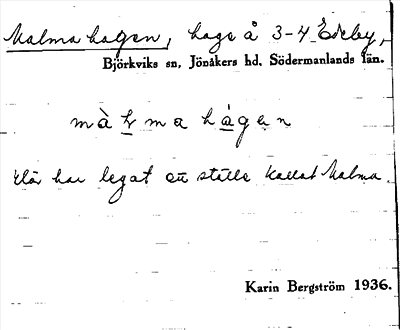 Malma hagen, hage å 3-4 Edeby,
Björkviks sn, Jönåkers hd, Södermanlands län.
må̀l̬ma hågen
där har legat ett ställe kallat Malma.
Karin Bergström 1936.